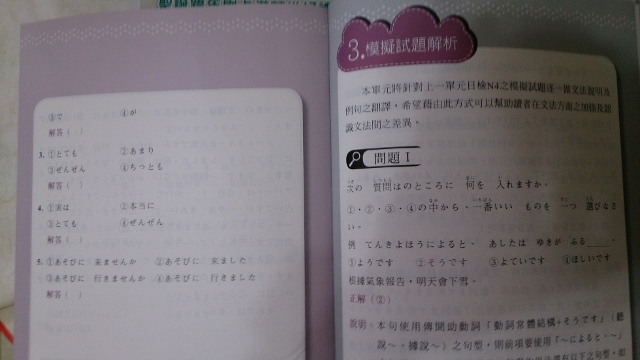 ③で ④が
解答（ ）
3. ①とても ②あまり
③ぜんぜん ④ちっとも
解答（ ）
4. ①実は ②本当に
③とても ④ぜんぜん
解答（ ）
5. ①あそびに 来ませんか ②あそびに 来ました
③あそびに 行きませんか ④あそびに 行きました
解答（ ）
3.模擬試題解析
本單元將針對上一單元日檢N4之模擬試題逐一做文法說明及
例句之翻譯，希望藉由此方式可以幫助讀者在文法方面之加強及認
識文法間之差異。
問題 I
次の 質問はのところに 何を 入れますか。
①・②・③・④の中から、一番いい ものを 一つ 選びなさ
い。
例 てんきよほうによると、 あしたは ゆきが ふる____。
①ようです ②そうです ③よていです ④ほしいです
根據氣象報告，明天會下雪。
正解（②）
說明：本句使用傳聞助動詞「動詞常體結構+そうです」（聽
說～、據說～）之句型，則前項要使用「～によると、～」